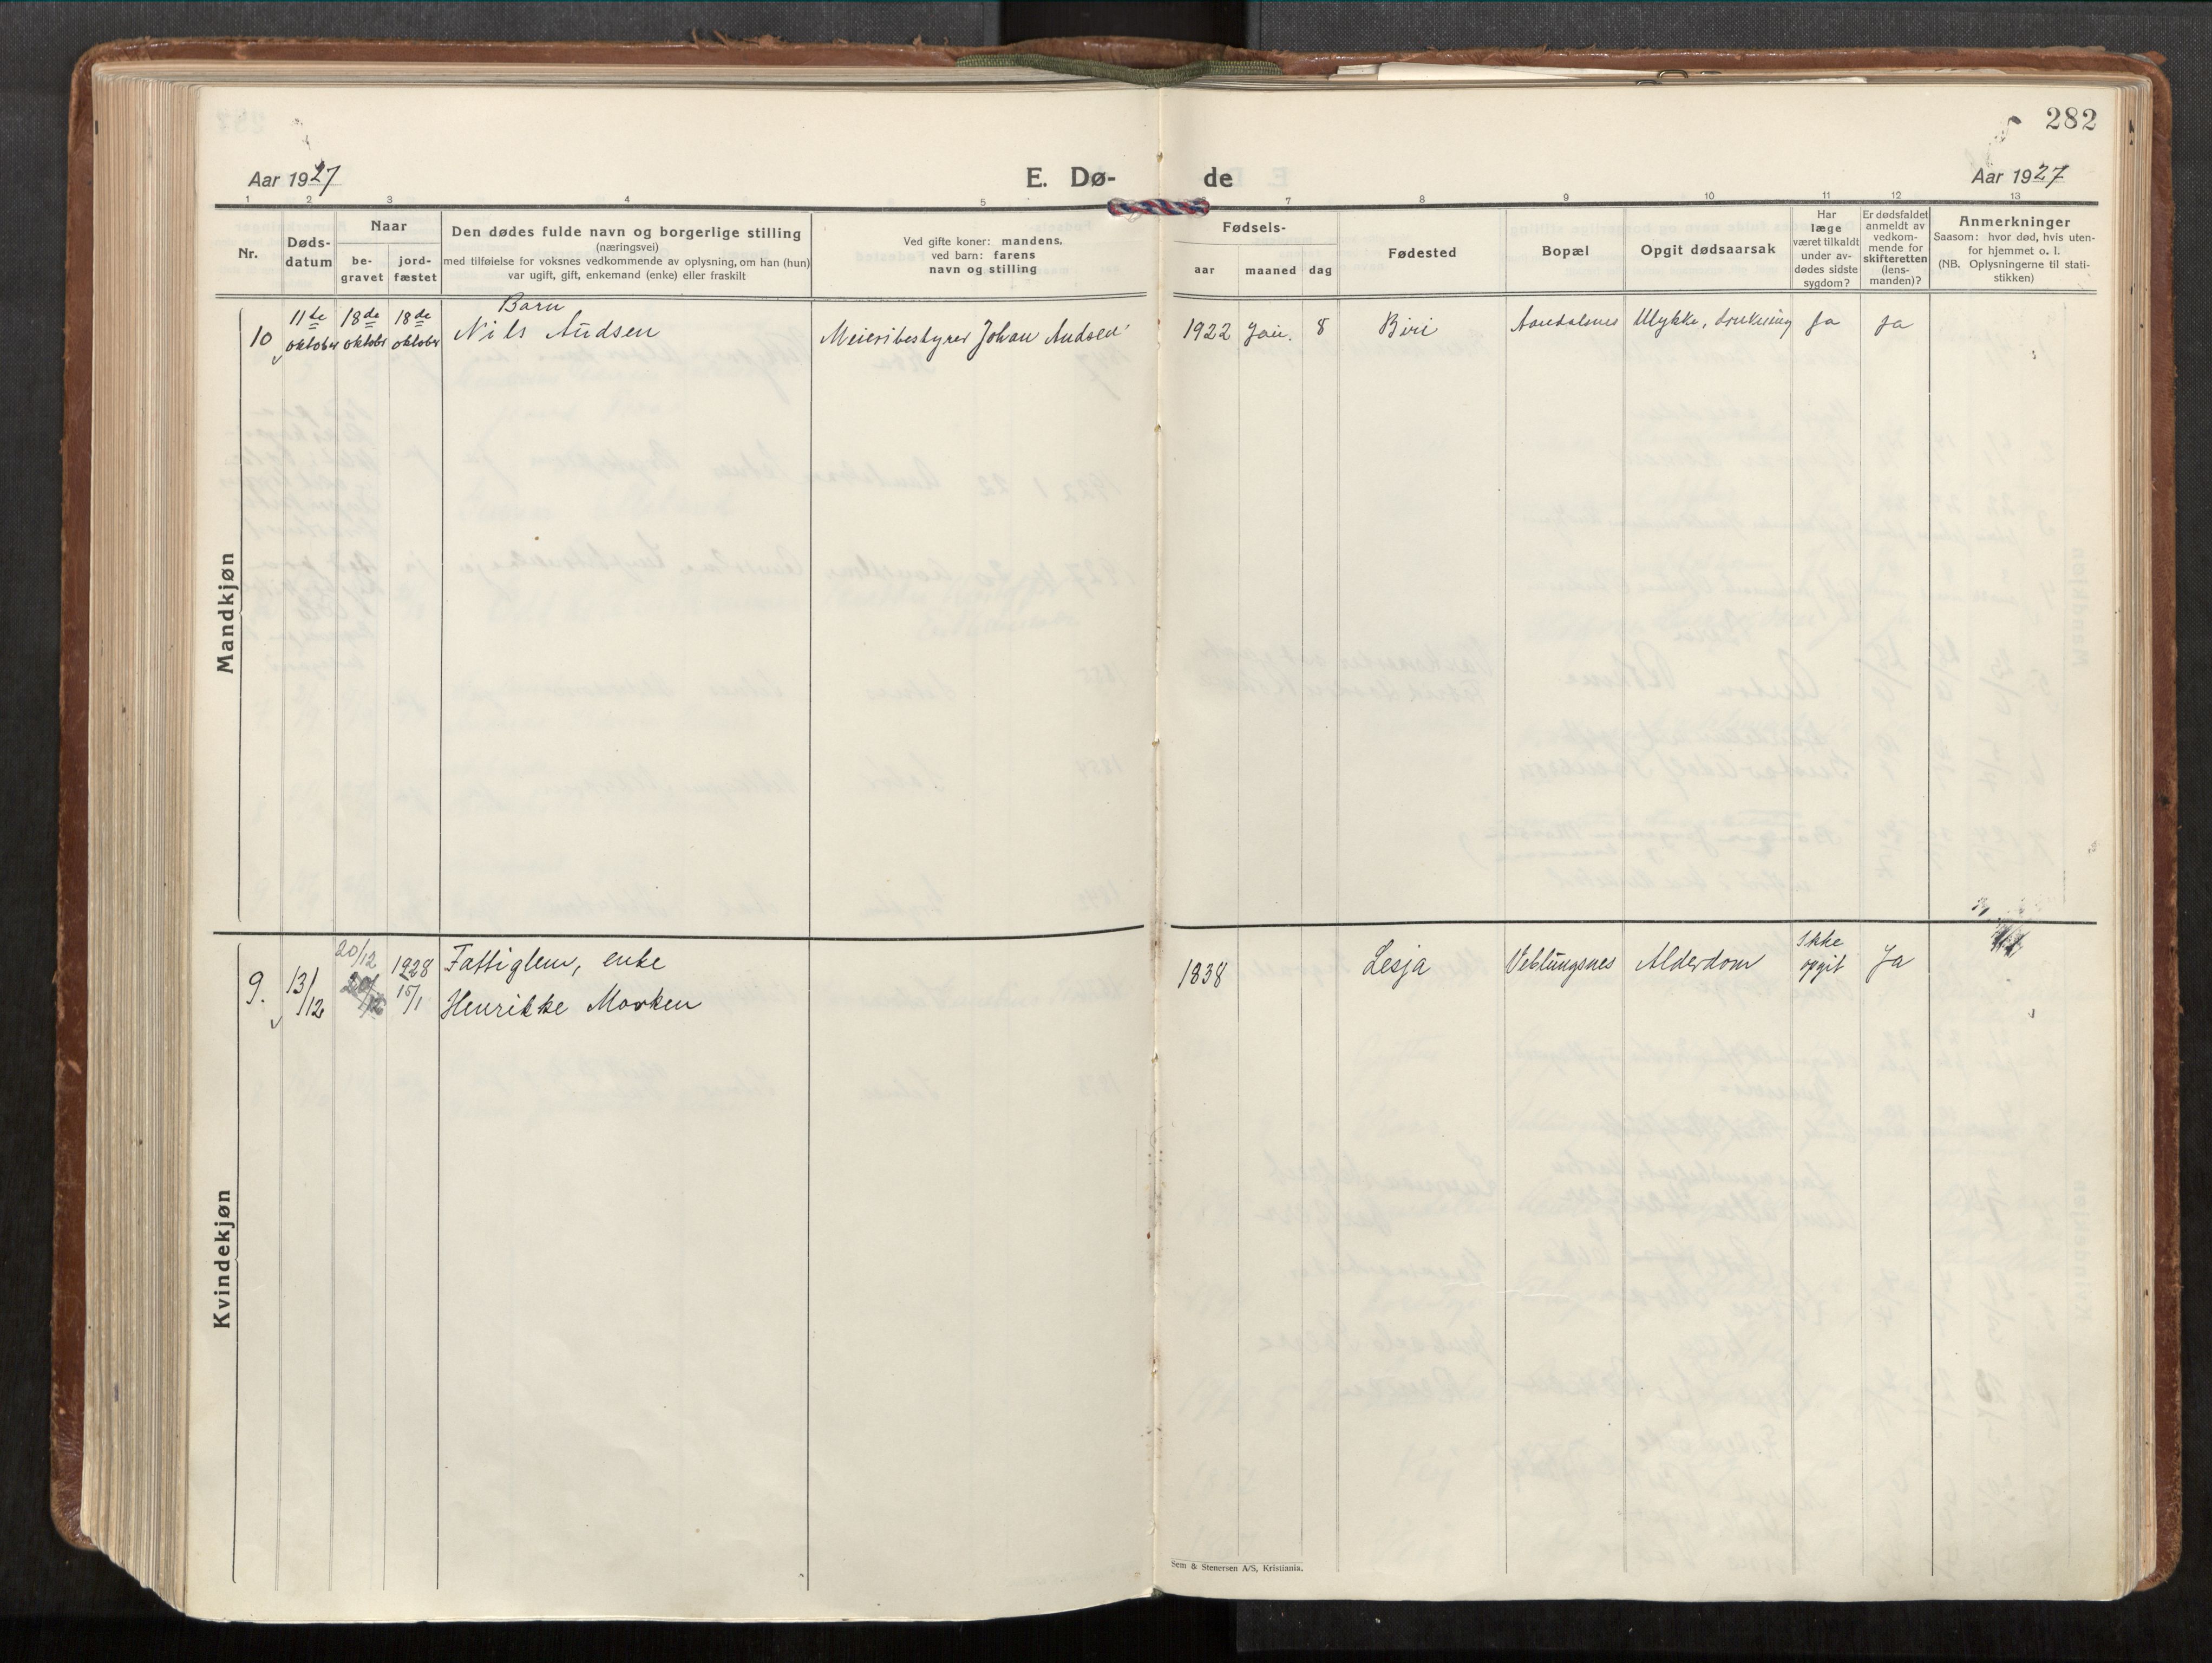 282
Aar 1927
E. Dø-
de
Aar 1927
1 2 3 4 5 7 8 9 10 11 12 13
Nr.
Døds-
datum
Naar
be-
gravet
jord-
fæstet
Den dødes fulde navn og borgerlige stilling
(næringsvei)
med tilføielse for voksnes vedkommende av oplysning, om han (hun)
var ugift, gift, enkemand (enke) eller fraskilt
Ved gifte koner: mandens,
ved barn: farens
navn og stilling
Fødsels-
aar
maaned
dag
Fødested
Bopæl
Opgit dødsaarsak
Har
læge
været tilkaldt
under av-
dødes sidste
sygdom?
Er dødsfaldet
anmeldt av
vedkom-
mende for
skifteretten
(lens-
manden)?
Anmerkninger
Saasom: hvor død, hvis uten-
for hjemmet o. l.
(NB. Oplysningerne til stati-
stikken)
Mandkjøn
10
11te
oktober
18de
oktobr
18de
oktober
Barn
Nils Audsen
Meieribestyrer Johan Audsen
1922
Jan.
8
Biri
Aandalsnes
Ulykke, drukning
Ja
Ja
Kvindekjøn
9.
13/12
20/12
1928
15/1
Fattiglem, enke
Henrikke Morken
1838
Lesja
Veblungsnes
Alderdom
Ikke
opgit
Ja
Sem & Stenersen A/S, Kristiania.